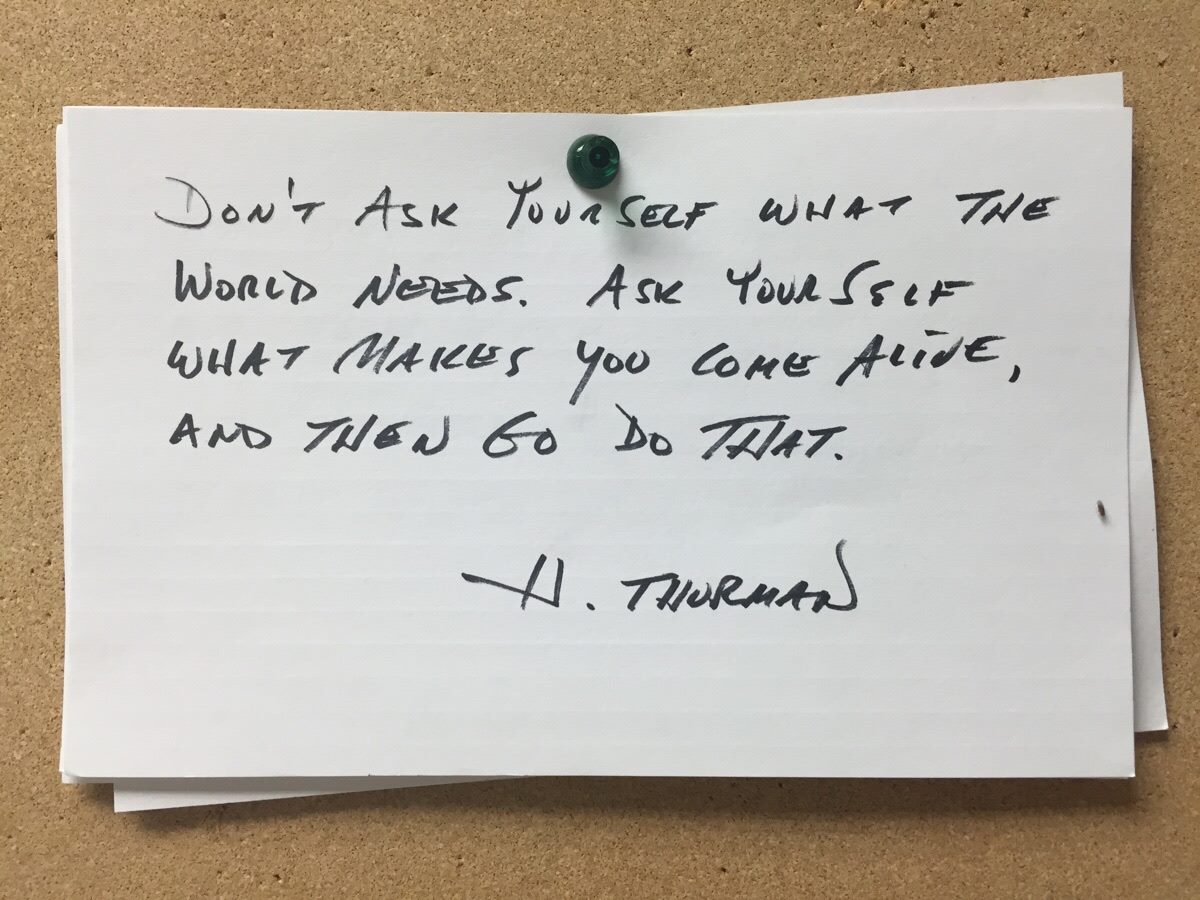 DON'T ASK YOURSELF WHAT THE
WORLD NEEDS. ASK YOURSELF
WHAT MAKES YOU COME ALIVE,
AND THEN GO DO THAT.
H. THURMAN